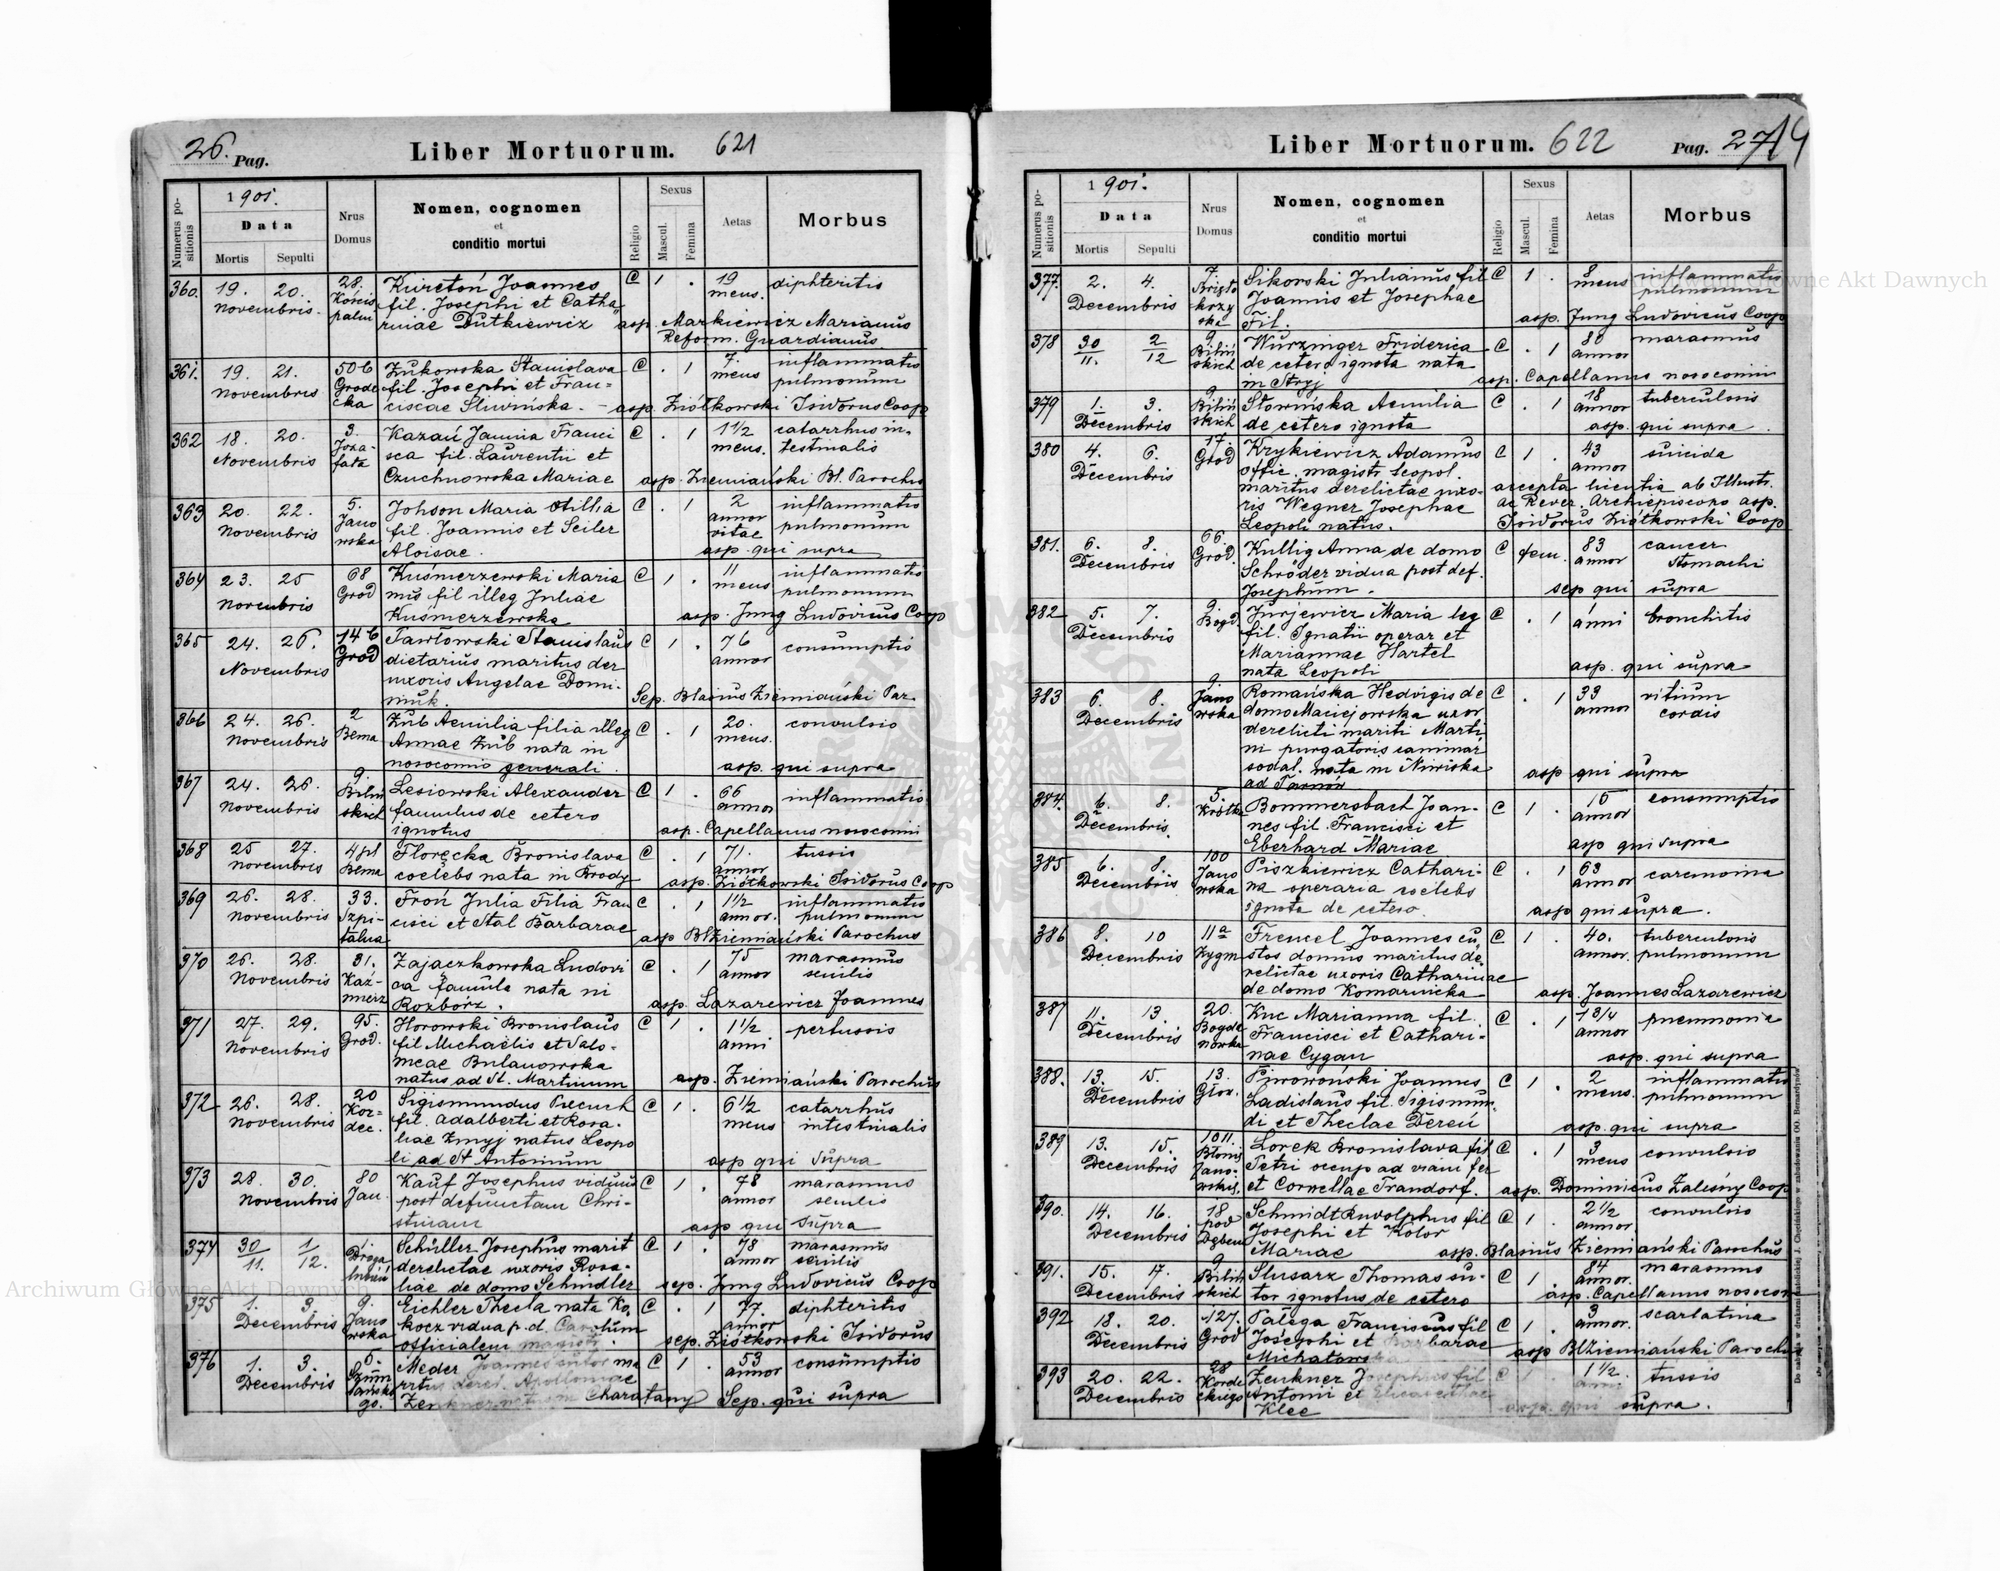 26. Pag.
Liber Mortuorum. 621
Numerus positionis
1901.
Data
Mortis Sepulti
Nrus Domus
Nomen, cognomen
et
conditio mortui
Religio
Sexus
Mascul. Femina
Aetas
Morbus
360. 19. 20. 28. Kuretoń Joannes C 1 . 19 diphteritis
Novembris. fil. Josephi et Catha mens.
Dutkiewicz asp. Markiewicz Marianus
Reform. Guardianus.
361. 19. 21. 50b Żukowska Stanislava C . 1 7. inflammatio
Novembris Grode fil. Josephi et Fran= mens pulmonum
cka ciscae Śliwińska. asp. Ziółkowski Isidorus Coop
362 18. 20. 3. Kazań Jannia Franci C . 1 1 1/2 catarrhus in=
Novembris Joza= sca fil. Laurentii et mens. testinalis
fata Czuchnowska Mariae asp. Ziemiański Bl. Parochus
363 20. 22. 5. Johson Maria Otillia C . 1 2 inflammatio
Novembris Jano fil. Joannis et Seiler annor pulmonum
wska Aloisae. vitae
asp. qui supra
364 23. 25 68 Kuśmierzewski Maria C 1 . 11 inflammatio
Novembris Grod nus fil illeg Juliae mens pulmonum
Kuśmerzewska asp. Jung Ludovicus Coop
365 24. 26. 14b Pawłowski Stanislaus C 1 . 76 consumptio
Novembris Grod dietarius maritus der annor
uxoris Angelae Domi-
niuk. Sep. Blasius Ziemiański Par.
366 24. 26. 2 Zub Aemilia filia illeg C . 1 20. convulsio
Novembris Bema Annae Zub nata in mens.
nosocomio generali. asp. qui supra
367 24. 26. 9. Lesiowski Alexander C 1 . 66 inflammatio
Novembris Biliń famulus de cetero annor
skich ignotus asp. Capellanus nosocomii
368 25 27. 4pl Floręcka Bronislava C . 1 71. tussis
Novembris Bema coelebs nata in Brody annor
asp. Ziółkowski Isidorus Coop
369 26. 28. 33. Froń Julia Filia Fran C . 1 1 1/2 inflammatio
Novembris Szpi= cisci et Stal Barbarae annor. pulmonum
talna asp Bl Ziemiański Parochus
370 26. 28. 31. Zajączkowska Ludovi C . 1 75 marasmus
Novembris Kaź= ca famula nata in annor senilis
mierz Rozbórz. asp. Lazarewicz Joannes
371 27. 29. 95. Horowski Bronislaus C 1 . 1 1/2 pertussis
Novembris Grod. fil Michaelis et Salo- anni
meae Bulanowska
natus ad St. Martinum asp. Ziemiański Parochus
372 26. 28. 20 Sigismundus Piecuch C 1 . 6 1/2 catarrhus
Novembris Kor= fil. Adalberti et Rosa- mens intestinalis
dec. liae Żmyj natus Leopo
li ad St Antonium asp qui supra
373 28. 30. 80 Kauf Josephus viduus C 1 . 78 marasmus
Novembris Jan. post defunctam Chri- annor senilis
stinam asp qui supra
374 30/11. 1/12. 1. Schüller Josephus marit C 1 . 78 marasmus
derelictae uxoris Rosa- annor senilis
liae de domo Schindler sep. Jung Ludovicus Coop
375 1. 3. 9. Eichler Thecla nata Ko. C . 1 77. diphteritis
Decembris Jano kocz vidua p.d. Carolum annor
wska officialem magistr. sep. Ziółkowski Isidorus
376 1. 3. 5. Meder Joannes sutor ma C 1 . 53 consumptio
Decembris Szum ritus derel. Apolloniae annor
lańskie
go. Zenkner natus in Charatany Sep. qui supra
Liber Mortuorum. 622
Pag. 27/4
Numerus positionis
1901.
Data
Mortis Sepulti
Nrus Domus
Nomen, cognomen
et
conditio mortui
Religio
Sexus
Mascul. Femina
Aetas
Morbus
377. 2. 4. 7. Sikorski Julianus fil C 1 . 8 inflammatio
Decembris Joannis et Josephae mens pulmonum
Fil. asp. Jung Ludovicus Coop
378 30/11. 2/12 9 Würzinger Friderica C . 1 80 marasmus
Biliń de cetero ignota nata annor
skich in Stryj asp. Capellanus nosocomii
379 1. 3. 9. Słowińska Aemilia C . 1 18 tuberculosis
Decembris Biliń de cetero ignota annor
skich asp. qui supra.
380 4. 6. 17. Krykiewicz Adamus C 1 . 43 suicida
Decembris Grod offic. magistr. Leopol. annor
maritus derelictae uxo- accepta licentia ab Illustr.
ris Wegner Josephae ac Rever. Archiepiscopo asp.
Leopoli natus. Isidorus Ziółkowski Coop
381. 6. 8. 66. Kullig Anna de domo C fem. 83 cancer
Decembris Grod. Schröder vidua post def. annor stomachi
Josephum. sep qui supra
382 5. 7. 9. Jurjewicz Maria leg C . 1 1 bronchitis
Decembris Bogd. fil. Ignatii operar et anni
Mariannae Hartel
nata Leopoli asp. qui supra
383 6. 8. 9. Romańska Hedvigis de C . 1 33 vitium
Decembris Jano domo Maciejowska uxor annor cordis
wska derelicti mariti Marti
ni purgatoris caminar
sodal. nata in Niwiska asp qui supra
ad Tarnów
384. 6. 8. 5. Bommersbach Joan- C 1 . 15 consumptio
Decembris. Krótka nes fil. Francisci et annor
Eberhard Mariae asp qui supra
385 6. 8. 100 Piszkiewicz Cathari- C . 1 63 carcinoma
Decembris Jano na operaria coelebs annor
wska ignota de cetero. asp qui supra.
386 8. 10 11a Frencel Joannes cu- C 1 . 40. tuberculosis
Decembris Zygm stos domus maritus de- annor. pulmonum
relictae uxoris Catharinae
de domo Komarnicka asp. Joannes Lazarewicz
387 11. 13. 20. Kuc Marianna fil. C . 1 1 3/4 pneumonia
Decembris Bogda Francisci et Cathari- annor
nówka nae Cygan asp. qui supra
388. 13. 15. 13. Piwowoński Joannes C 1 . 2 inflammatio
Decembris Głow. Ladislaus fil. Sigismun- mens. pulmonum
di et Theclae Dereń asp. qui supra
389 13. 15. 1011. Lorek Bronislava fil C . 1 3 convulsio
Decembris Błonie Petri occup ad viam fer mens
Jano- et Cornellae Trandorf. asp. Dominicus Zaleśny Coop
wskie.
390. 14. 16. 18 Schmidt Rudolphus fil C 1 . 2 1/2 convulsio
Decembris pod Josephi et Kotor annor
Dębem Mariae asp. Blasius Ziemiański Parochus
391. 15. 17. 9 Slusarz Thomas su- C 1 . 84 marasmus
Decembris Biliń tor ignotus de cetero annor.
skich asp. Capellanus nosocom
392 18. 20. 127. Pałęga Franciscus fil C 1 . 3 scarlatina
Decembris Grod Josephi et Barbarae annor.
Michałowska asp Bl Ziemiański Parochus
393 20. 22. 28 Zenkner Josephus fil. C 1 . 1 1/2 tussis
Decembris Korde Antonii et Elisabethae anni
ckiego Klee asp. qui supra.
Archiwum Główne Akt Dawnych
Archiwum Główne Akt Dawnych
ARCHIWUM GŁÓWNE AKT DAWNYCH